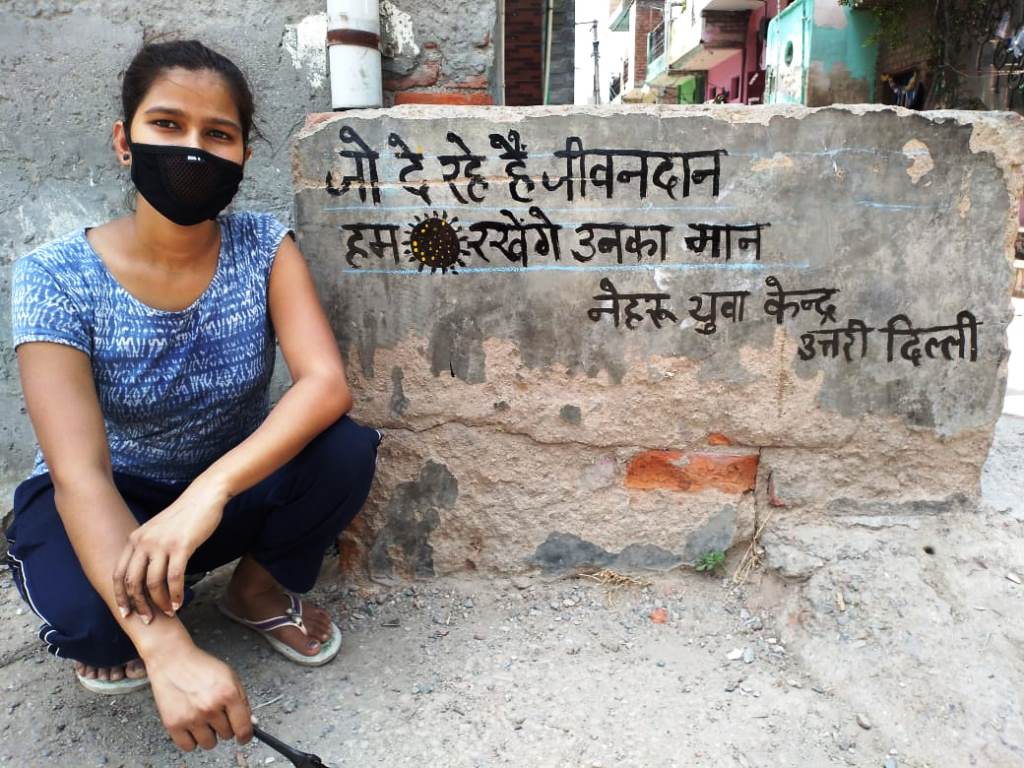 जो दे रहे हैं जीवनदान
हम रखेंगे उनका मान
नेहरू युवा केन्द्र
उत्तरी दिल्ली